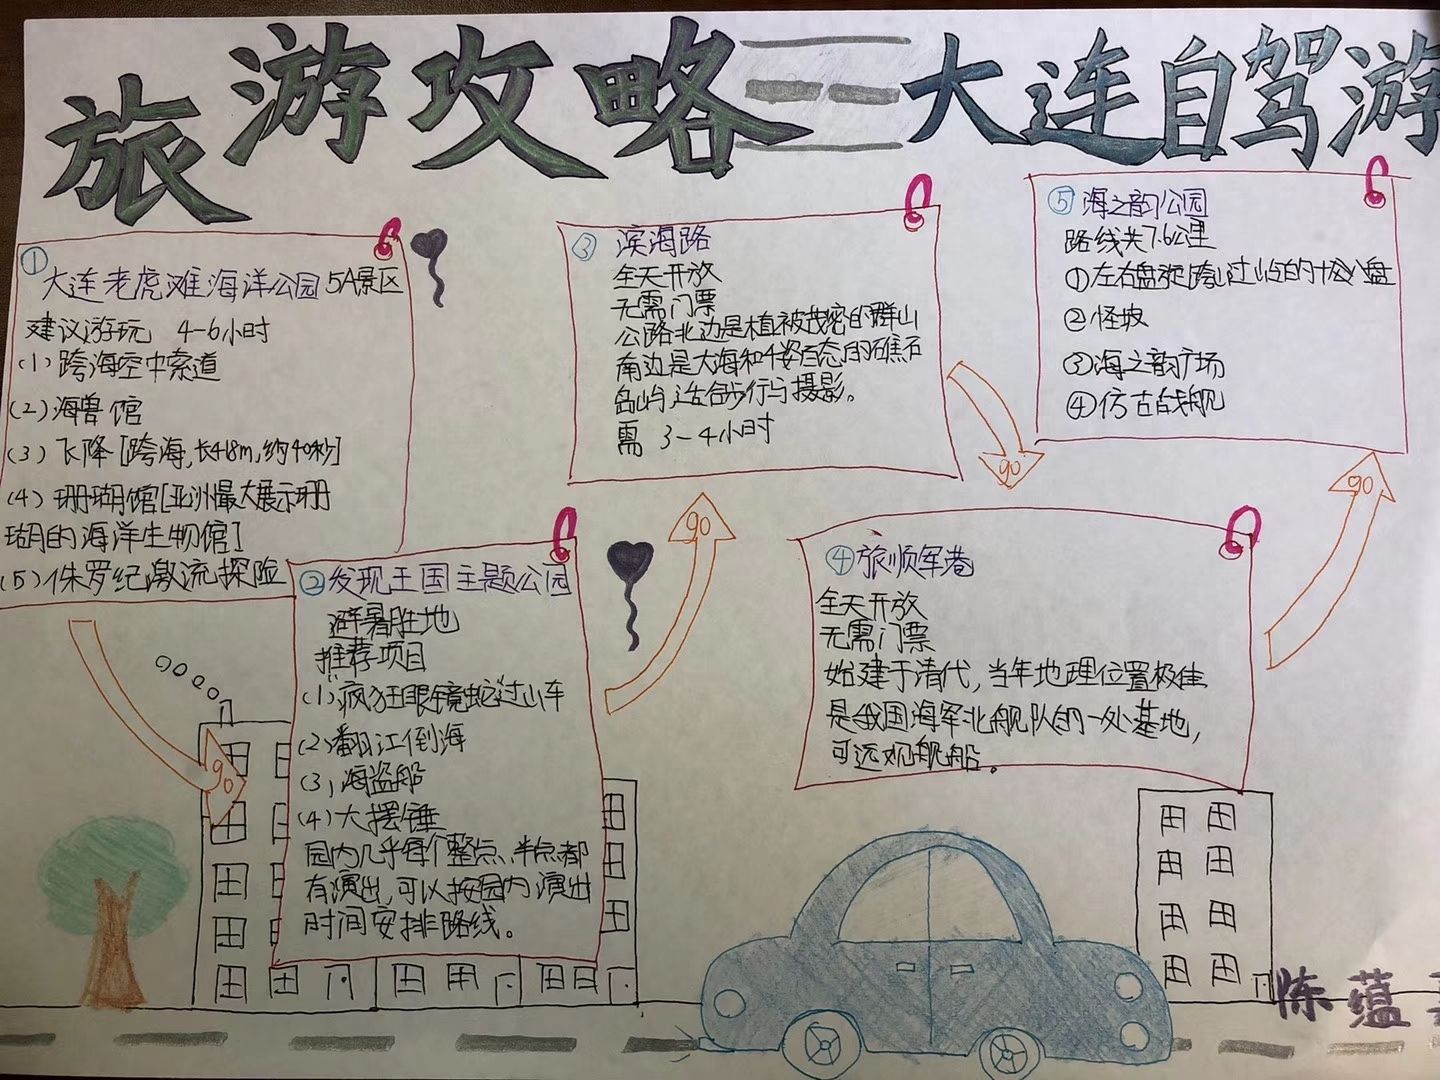 旅游攻略
大连自驾游
①
大连老虎滩海洋公园 5A景区
建议游玩 4-6小时
(1) 跨海空中索道
(2) 海兽馆
(3) 飞降[跨海,长418m,约40秒]
(4) 珊瑚馆[亚洲最大展示珊
瑚的海洋生物馆]
(5) 侏罗纪激流探险
②发现王国主题公园
避暑胜地
推荐项目
(1) 疯狂眼镜蛇过山车
(2) 翻江倒海
(3) 海盗船
(4) 大摆锤
园内几乎每个整点、半点都
有演出,可以按园内演出
时间安排路线。
③ 滨海路
全天开放
无需门票
公路北边是植被茂密的群山
南边是大海和千姿百态的礁石
岛屿,适合步行与摄影。
需 3-4小时
④旅顺军港
全天开放
无需门票
始建于清代,当年地理位置极佳
是我国海军北舰队的一处基地,
可远观舰船。
⑤ 海之韵公园
路线共7.6公里
①左右盘旋跨山过屿的十八盘
②怪坡
③海之韵广场
④仿古战舰
go
go
go
go
陈蕴